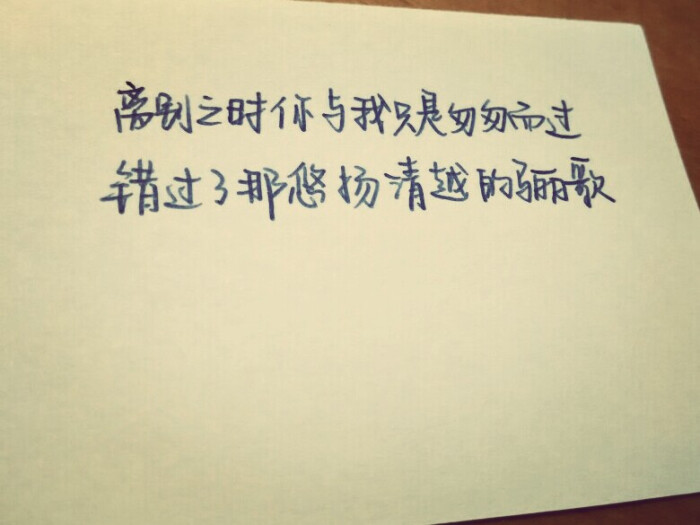 离别之时你与我只是匆匆而过
错过了那悠扬清越的骊歌